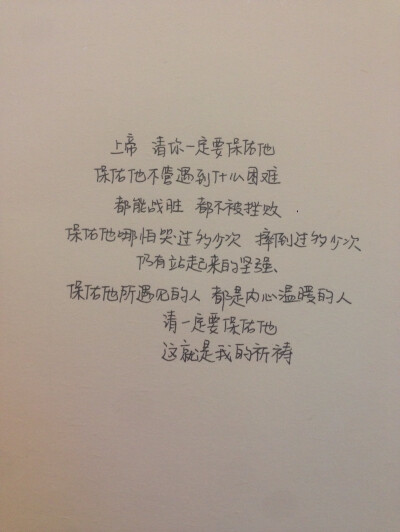 上帝 请你一定要保佑他
保佑他不管遇到什么困难
都能战胜 都不被挫败
保佑他哪怕哭过多少次 摔倒过多少次
仍有站起来的坚强、
保佑他所遇见的人 都是内心温暖的人
请一定要保佑他
这就是我的祈祷